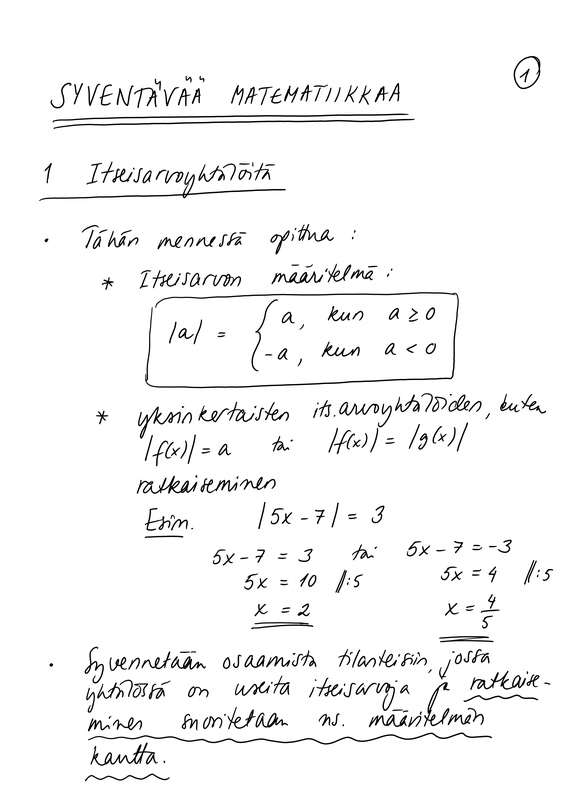 ①
SYVENTÄVÄÄ MATEMATIIKKAA
1 Itseisarvoyhtälöitä
• Tähän mennessä opittua :
* Itseisarvon määritelmä :
|a| = { a, kun a ≥ 0
-a, kun a < 0
* yksinkertaisten its.arvoyhtälöiden, kuten
|f(x)| = a tai |f(x)| = |g(x)|
ratkaiseminen
Esim. |5x - 7| = 3
5x - 7 = 3 tai 5x - 7 = -3
5x = 10 ‖:5 5x = 4 ‖:5
x = 2 x = 4/5
• Syvennetään osaamista tilanteisiin, jossa
yhtälössä on useita itseisarvoja ja ratkaise-
minen suoritetaan ns. määritelmän
kautta.